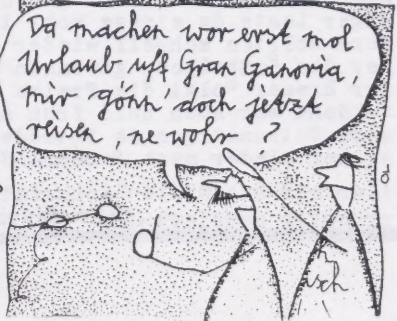 Da machen wor erst mol
Urlaub uff Gran Ganoria,
mir gönn' doch jetzt
reisen, ne wohr?
isch